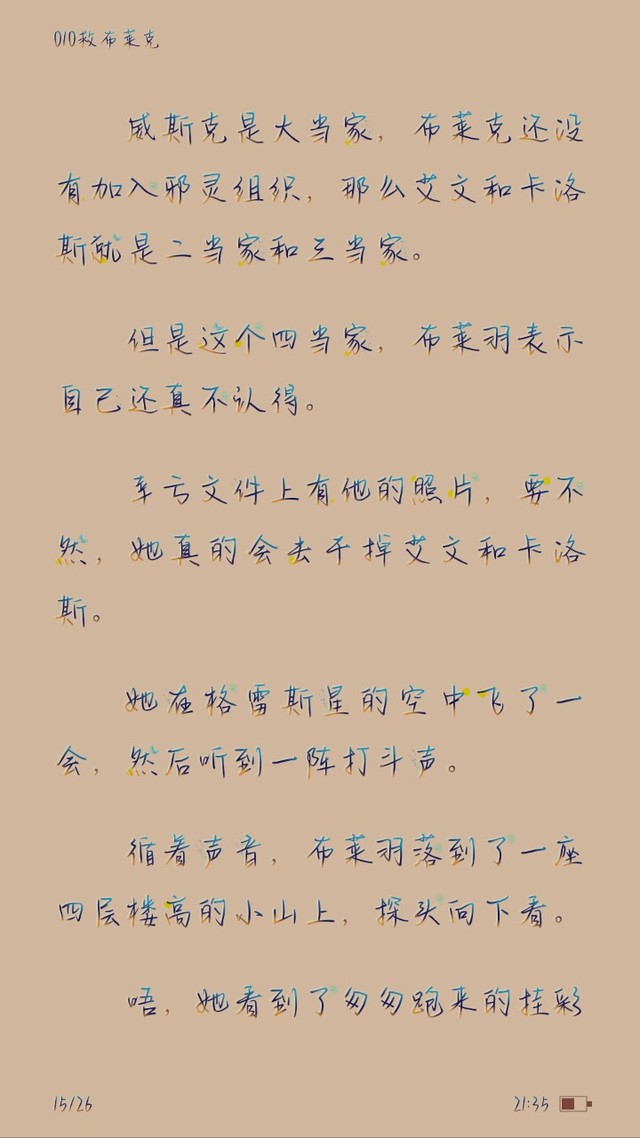 010救布莱克
威斯克是大当家，布莱克还没
有加入邪灵组织，那么艾文和卡洛
斯就是二当家和三当家。
但是这个四当家，布莱羽表示
自己还真不认得。
幸亏文件上有他的照片，要不
然，她真的会去干掉艾文和卡洛
斯。
她在格雷斯星的空中飞了一
会，然后听到一阵打斗声。
循着声音，布莱羽落到了一座
四层楼高的小山上，探头向下看。
唔，她看到了匆匆跑来的挂彩
15/26
21:35